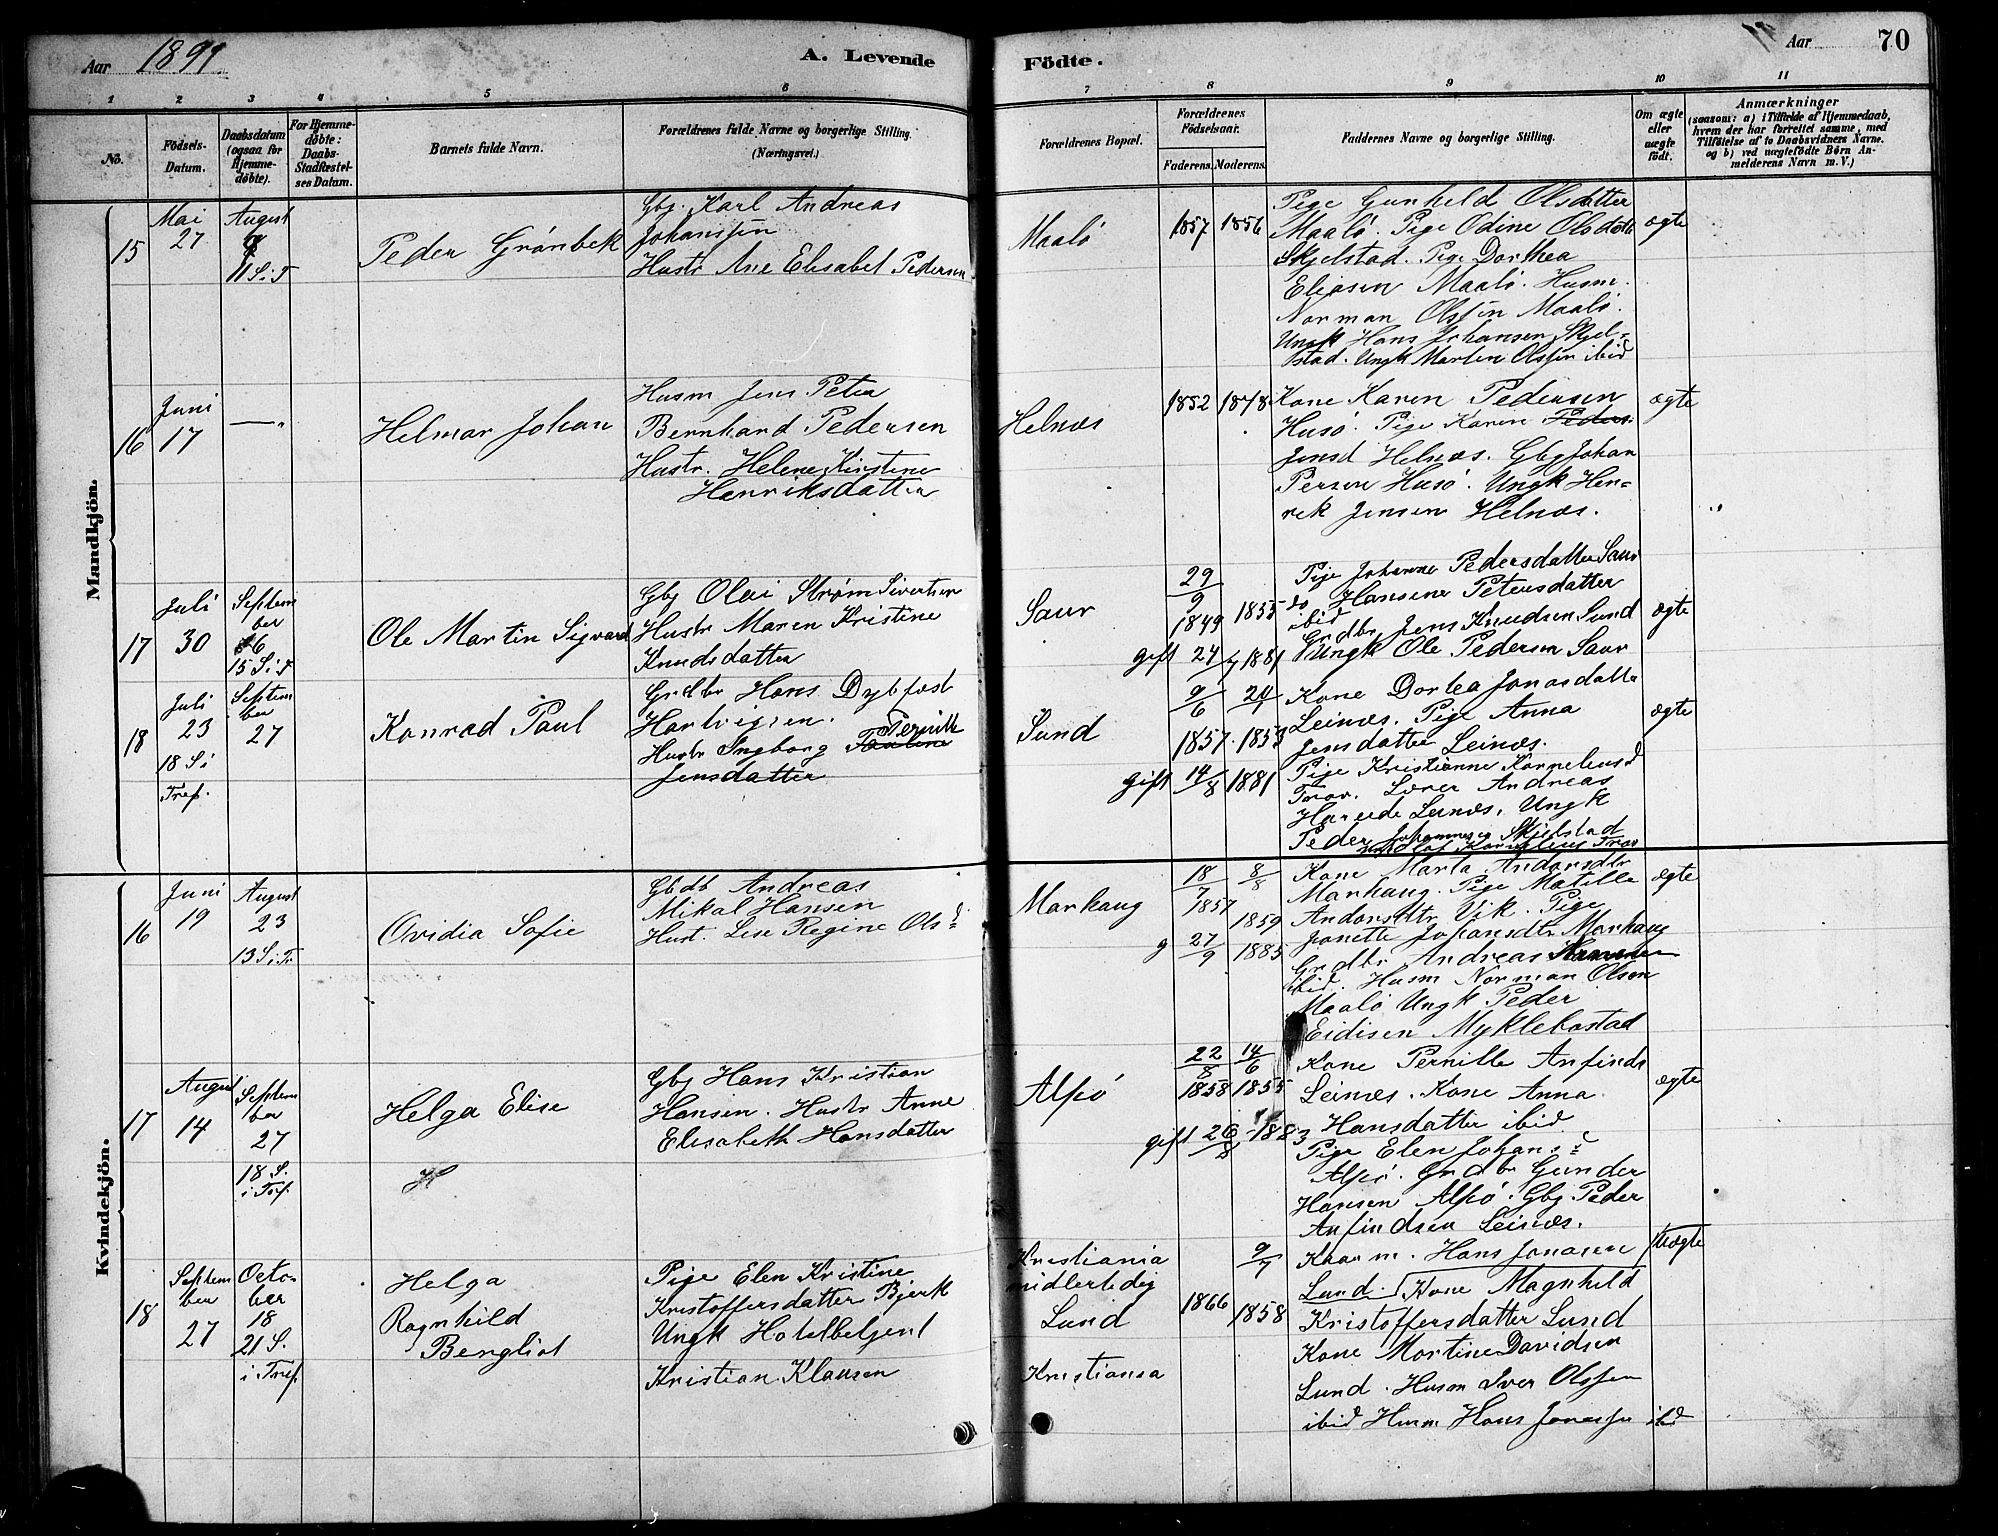 Aar 1891
A. Levende
Födte.
Aar
70
1 2 3 4 5 6 7 8 9 10 11
No.
Födsels-
Datum.
Daabsdatum
(ogsaa for
Hjemme-
döbte).
For Hjemme-
döbte:
Daabs-
Stadfæstel-
ses Datum.
Barnets fulde Navn.
Forældrenes fulde Navne og borgerlige Stilling.
(Næringsvei.)
Forældrenes Bopæl.
Forældrenes
Födselsaar.
Faderens. Moderens.
Faddernes Navne og borgerlige Stilling.
Om ægte
eller
uægte
födt.
Anmærkninger
(saasom: a) i Tilfælde af Hjemmedaab,
hvem der har forrettet samme, med
Tilföielse af to Daabsvidners Navne.
og b) ved uægtefödte Börn An-
melderens Navn m. V.)
Mandkjön.
15
Mai
27
August
9
11 S. i T
Peder Grønbek
Gbj. Karl Andreas
Johanssen
Hustr Ane Elisabet Pedersen
Maalö
1857 1856
Pige Gunhild Olsdatter
Maalö. Pige Odine Olsdatt
Skjelstad. Pige Dorthea
Eliasen Maalö. Husm.
Norman Olssen Maalö.
Ungk Hans Johansen Skjel-
stad. Ungk Martin Olssen ibid
ægte
16
Juni
17
—„
Helmar Johan
Husm Jens Peter
Bernhard Pedersen
Hustr. Helene Kirstine
Henriksdatter
Helnæs
1852 1848
Kone Karen Pedersen
Husö. Pige Karen Peders
Jensd Helnæs. Gbj Johan
Persen Husö. Ungk Hen-
rek Jensen Helnæs.
ægte
17
Juli
30
Septem
ber
6
15 S. i T
Ole Martin Sigvard
Gbj Olai Strøm Sivertsen
Hustr Maren Kristine
Knudsdatter
Saur
29
9
1849 1855
gift 24/7 1881
Pige Johanne Pedersdatter Saur
do Hansine Petersdatter
ibid
Grdbr Jens Knudsen Sund
Ungk Ole Pedersen Saur
ægte
18
Juli
23
18 S i
Tref.
Septem
ber
27
Konrad Paul
Grdbr Hans Dybfest
Hartvigsen.
Hustr Ingborg Pauline Pernille
Jensdatter
Sund
9/6 24/7
1857. 1853
gift 14/8 1881
Kone Dortea Jonasdatte
Leinæs. Pige Anna
Jensdatter Leinæs.
Pige Kristianne Korneliusd
Tror. Lærer Andreas
Leinæs. Ungk
Peder Johannesen Skjelstad
Kornelius Tror
ægte
Kvindekjön.
16
Juni
19
August
23
13 S. i Tr
Ovidia Sofie
Gbdb Andreas
Mikal Hansen
Hust. Lise Regine Olsd
Markaug
18/7 8/8
1857
1859
g 27/9 1885
Kone Marta Andorsdtr
Markaug. Pige Matilla
Andorsdtr Vik. Pige
Janette Johansdtr Markaug
Grdbr Andreas
ibid. Husm Norman Olsen
Maalö Ungk Peder
Eidisen Myklebostad
ægte
17
August
14
Septem
ber
27
18 S.
i Tref.
Helga Elise
H
Gbj Hans Kristian
Hansen. Hustr Anne
Elisabeth Hansdatter
Alsö
22/8 14/6
1858 1855
gift 26/8 1883
Kone Pernille Anfinds
Leinæs. Kone Anna
Hansdatter ibid
Pige Elen Johansd
Alsö. Grdbr Gunder
Hansen Alsö. Gbj Peder
Anfindsen Leinæs.
ægte
18
Septem
ber
27
Octo-
ber
18
21 S.
i Tref
Helga
Ragnhild
Bengliot
Pige Elen Kristine
Kristoffersdatter Bjerk
Ungk Hotelbetjent
Kristian Klausen
Kristiania
midlertidig
Lund
Kristiania
9/7
1866 1858
Kaarm. Hans Jonasen
Lund. Kone Magnhild
Kristoffersdatter Lund
Kone Martine Davidsen
Lund. Husm Iver Olssen
ibid Husm Hans Jonassen ibid
uægte